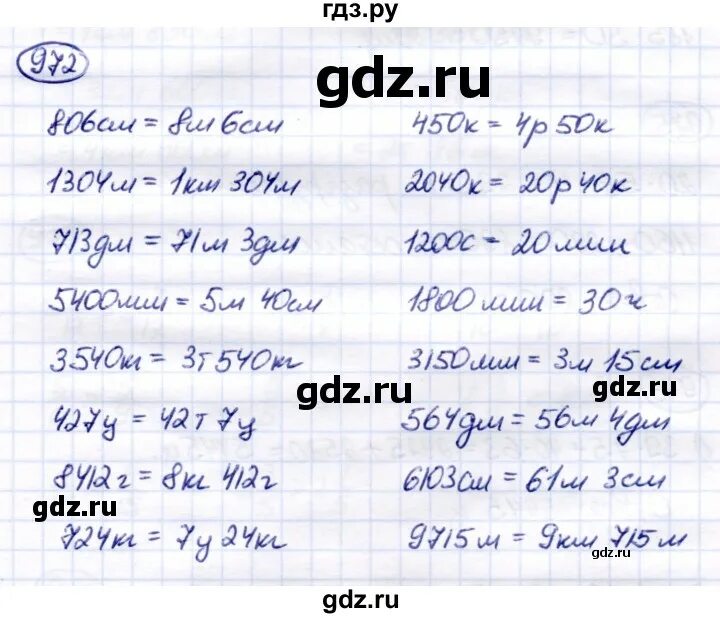 гдз.ру
972
gdz.ru
806см = 8м 6см
450к = 4р 50к
1304м = 1км 304м
2040к = 20р 40к
713дм = 71м 3дм
1200с = 20мин
5400мм = 5м 40см
1800мин = 30ч
3540кг = 3т 540кг
3150мм = 3м 15см
gdz.ru
gdz.ru
427ц = 42т 7ц
564дм = 56м 4дм
8412г = 8кг 412г
6103см = 61м 3см
gdz.ru
724кг = 7ц 24кг
9715м = 9км 715м
gdz.ru
gdz.ru